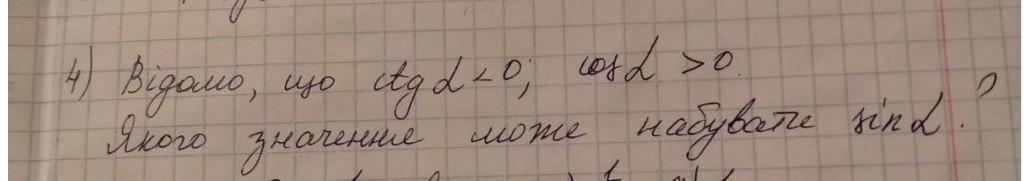 4) Відомо, що ctg α < 0; cos α > 0.
Якого значення може набувати sin α ?